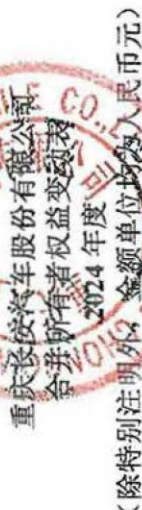 重庆长安汽车股份有限公司
合并所有者权益变动表
2024 年度
（除特别注明外，金额单位均为人民币元）
CO.,